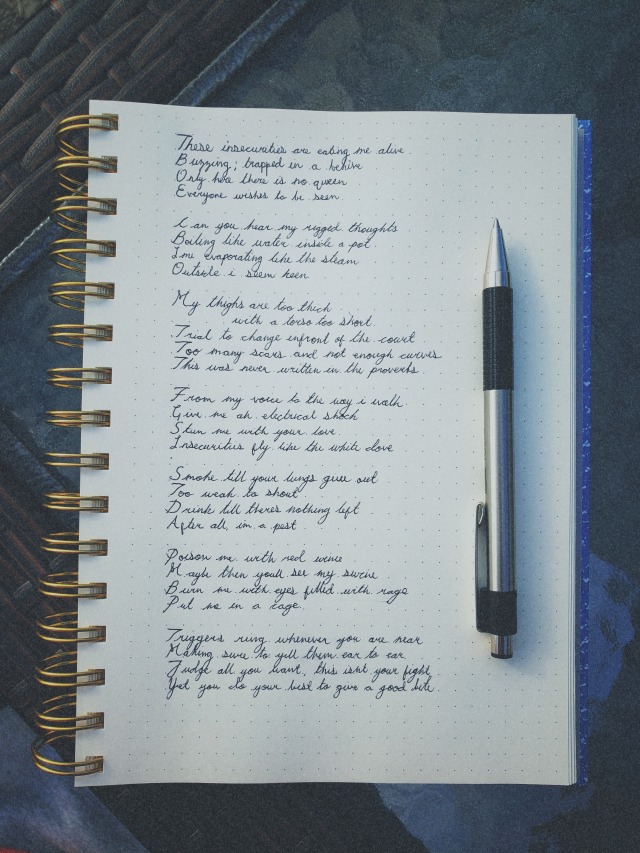 These insecurities are eating me alive
Buzzing; trapped in a behive
Only here there is no queen
Everyone wishes to be seen

Can you hear my rigged thoughts
Boiling like water inside a pot
Ime evaporating like the steam
Outside i seem keen

My thighs are too thick
with a torso too short
Trial to change infront of the court
Too many scars and not enough curves
This was never written in the proverbs

From my voice to the way i walk
Give me an electrical shock
Stun me with your love
Insecurities fly like the white dove

Smoke till your lungs give out
Too weak to shout
Drink till theres nothing left
After all, im a pest

Poison me with red wine
Maybe then youll see my
Burn me with eyes filled with rage
Put me in a cage

Triggers ring whenever you are near
Making sure to yell them ear to ear
Judge all you want, this isnt your fight
Yet you do your best to give a good bite